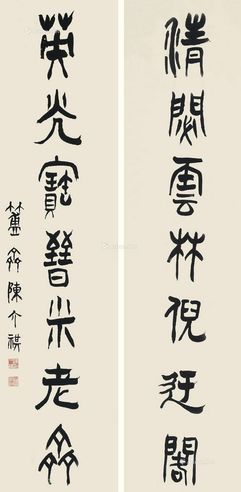 清閟雲林倪迂閣
英光寶晉米老齋
簠齋陳介祺